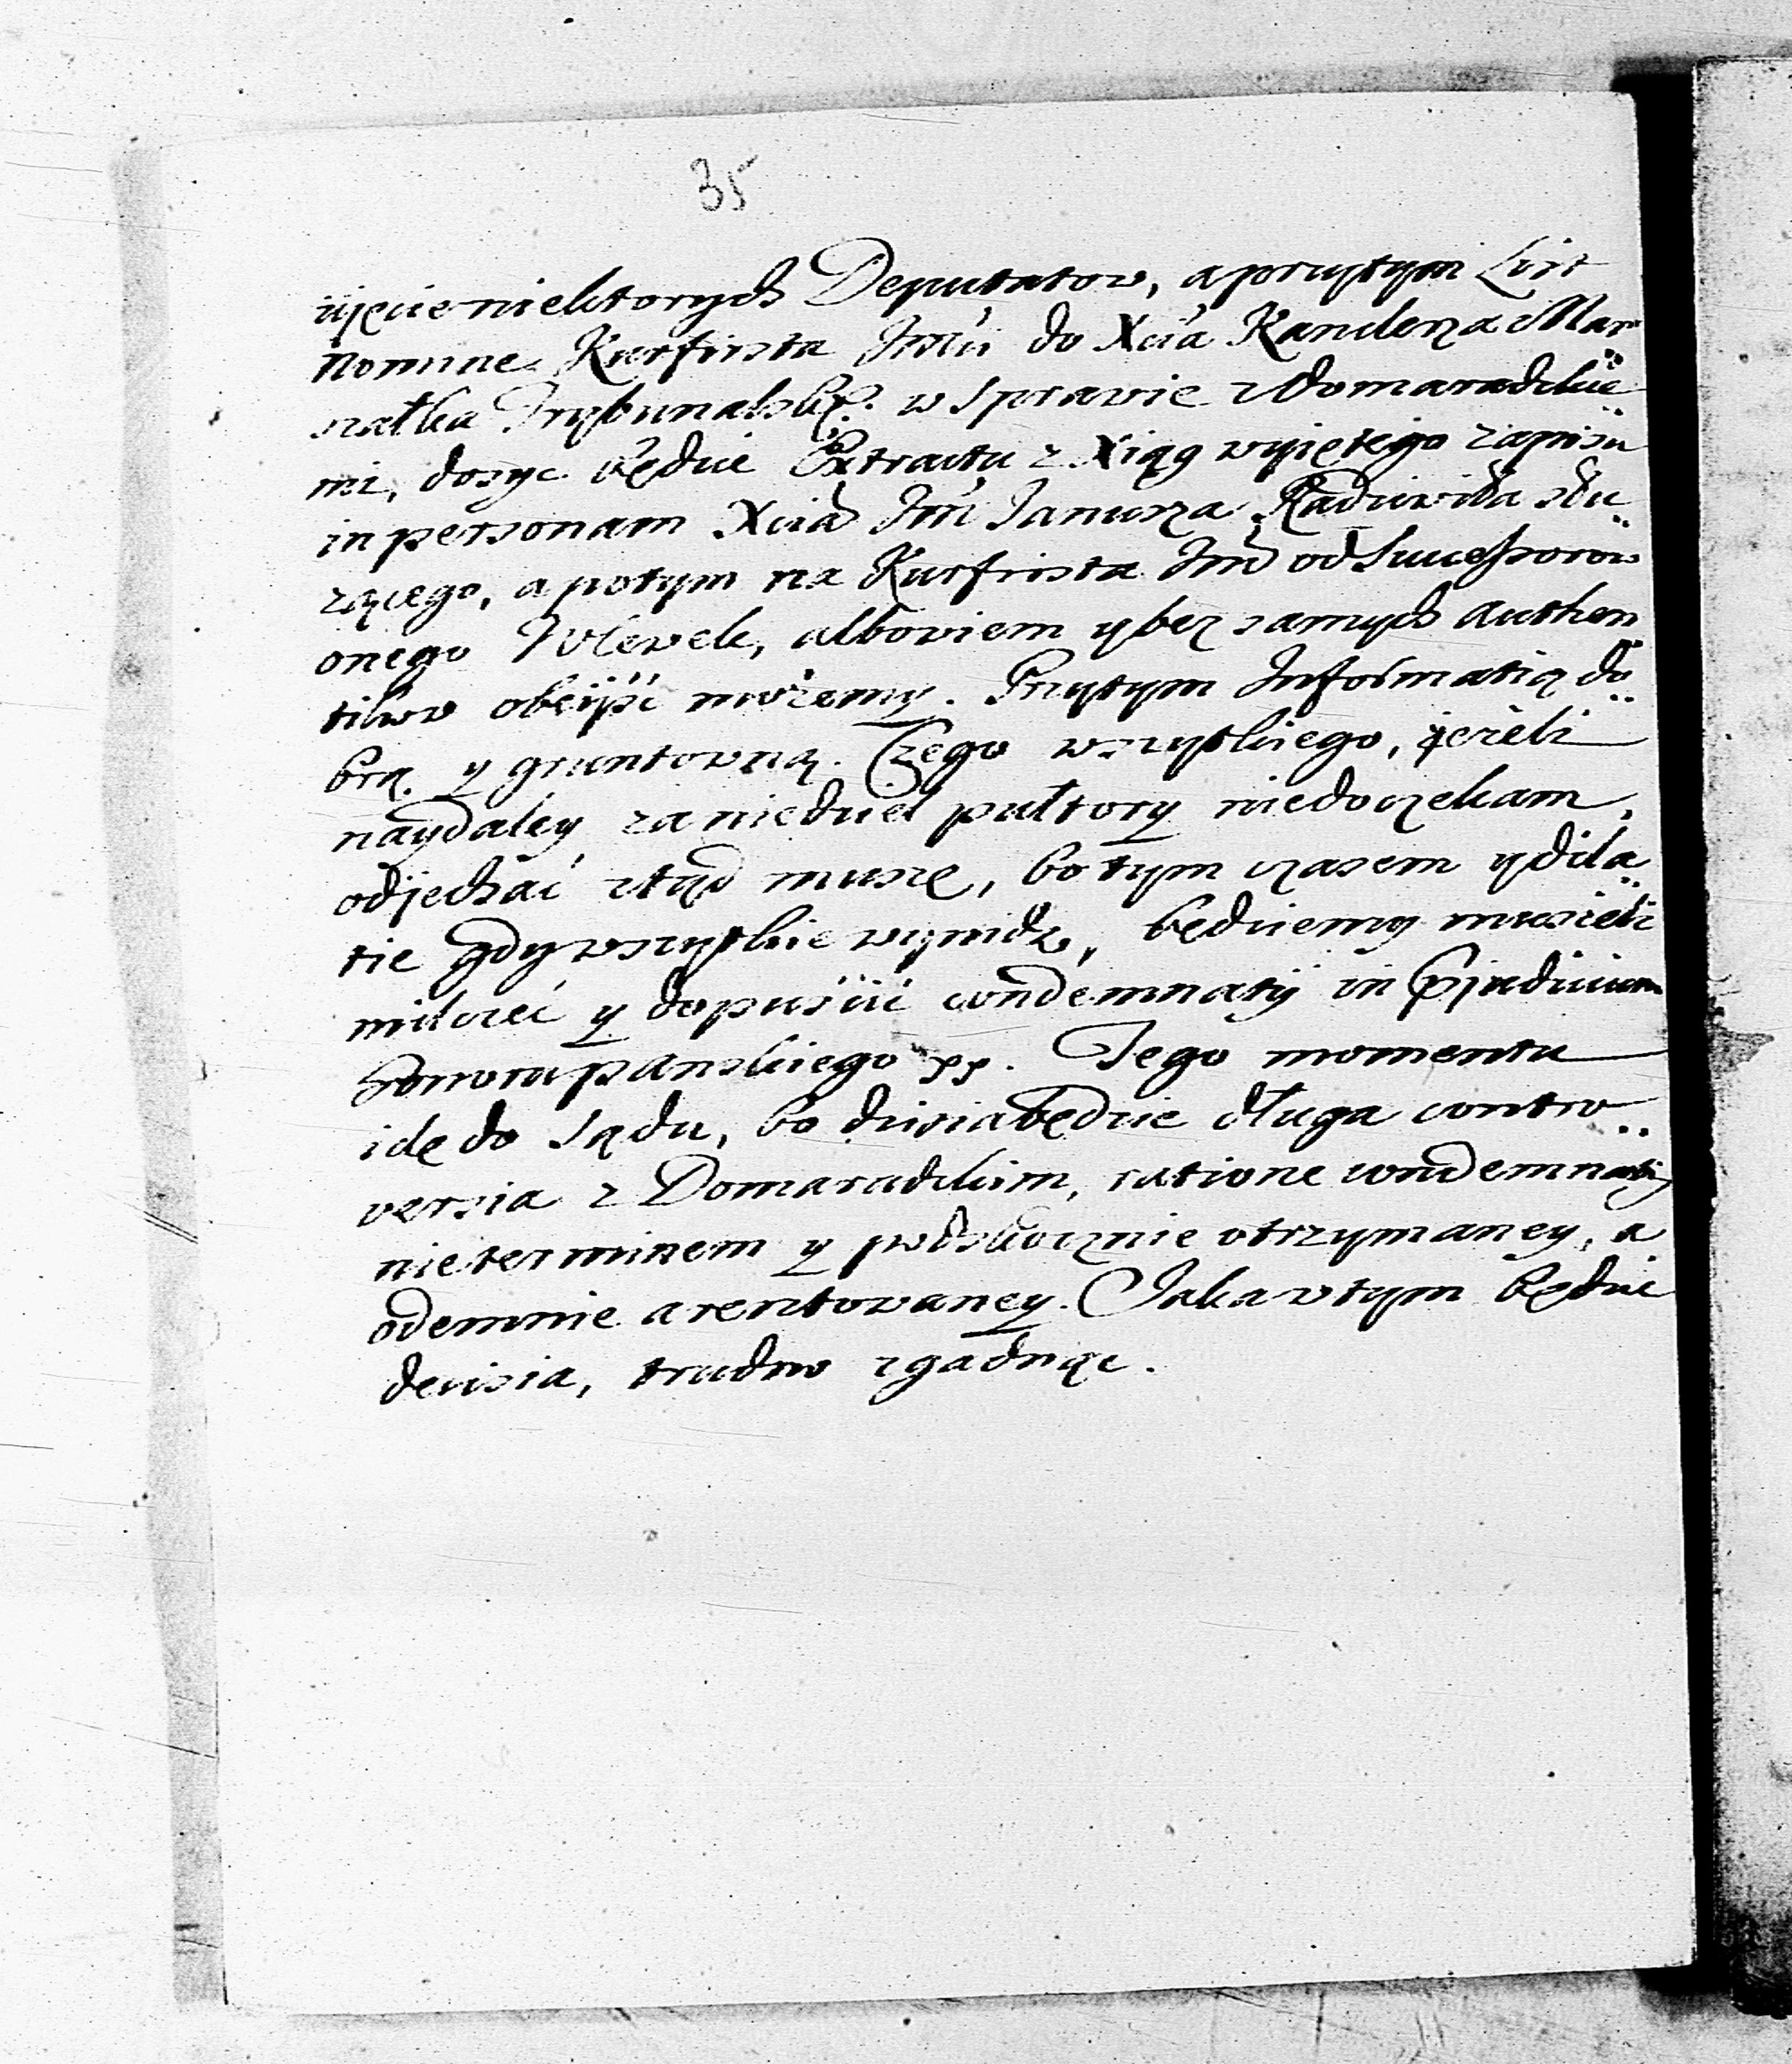 35
ujęcie niektorych Deputatow, a przytym List
Nomine Kurfirsta Jmći do Xcia Kanclerza Mar
szałka Trybunalsk: w sprawie z Domaradzkie
mi, dosyc będzie Extractu z Xiąg wyiętego zapisu
in personam Xcia Jmći Janusza Radziwiła słu
żącego, a potym na Kurfirsta Jmći od Successorow
onego Wlewek, albowiem y bez samych authen
tikow obeyść możemy. Przytym Informatią do
brą y gruntowną. Czego wszytkiego, jeżeli
naydaley za niedziel pułtory niedoczekam,
odjechać ztąd muszę, bo tym czasem y dila
tie gdy wszytkie wynidą, będziemy musieli
milczeć y dopuścić condemnatij in præjudicium
honoru panskiego pp. Tego momentu
idę do Sądu, bo dzisia będzie długa contro
versia z Domaradzkim, ratione condemnatij
nie terminem y podskocznie otrzymaney, a
odemnie arestowaney. Jaka w tym będzie
decisia, trudno zgadnąc.